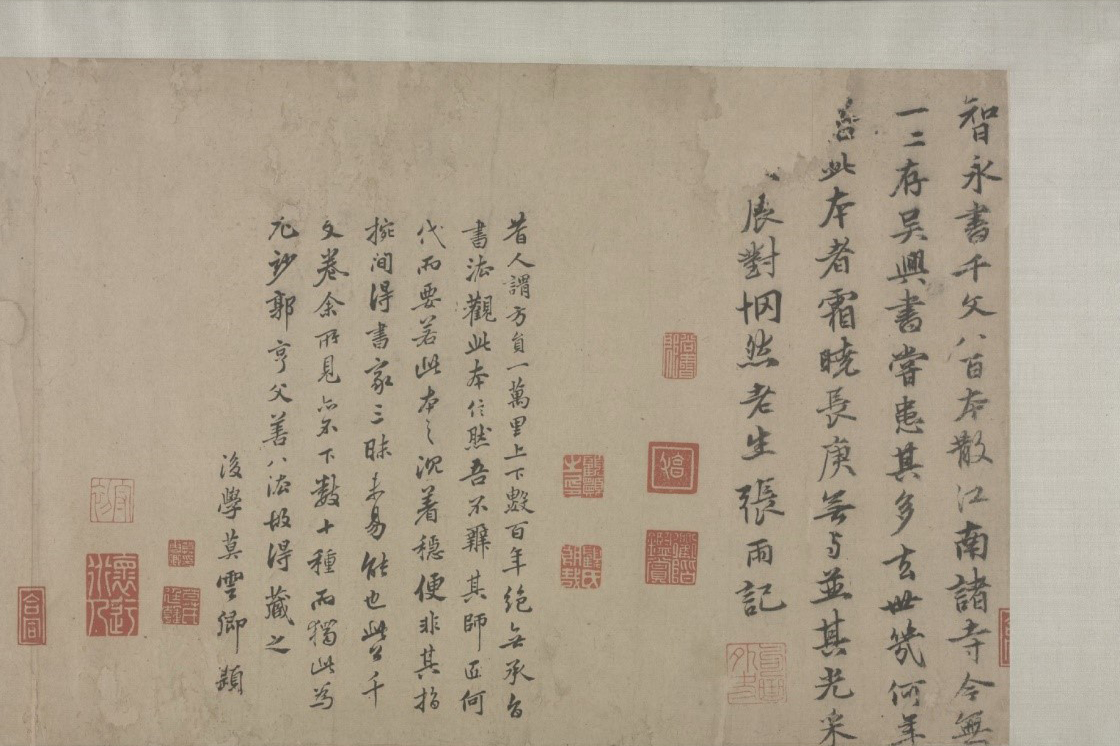 智永書千文八百本散江南諸寺今無
一二存吳興書嘗患其多玄世筑何年
善此本者霜曉長庚無與並其光采
展對惘然老生張雨記
昔人謂方員一萬里上下數百年絕無承旨
書法觀此本信然吾不辨其師匠何
代而要若此本之沉著穩便非其指
捥間得書家三昧未易能也此公千
文卷余所見亦不下數十種而獨此為
尤妙郭亨父善八法故得藏之
後學莫雲卿題
合同